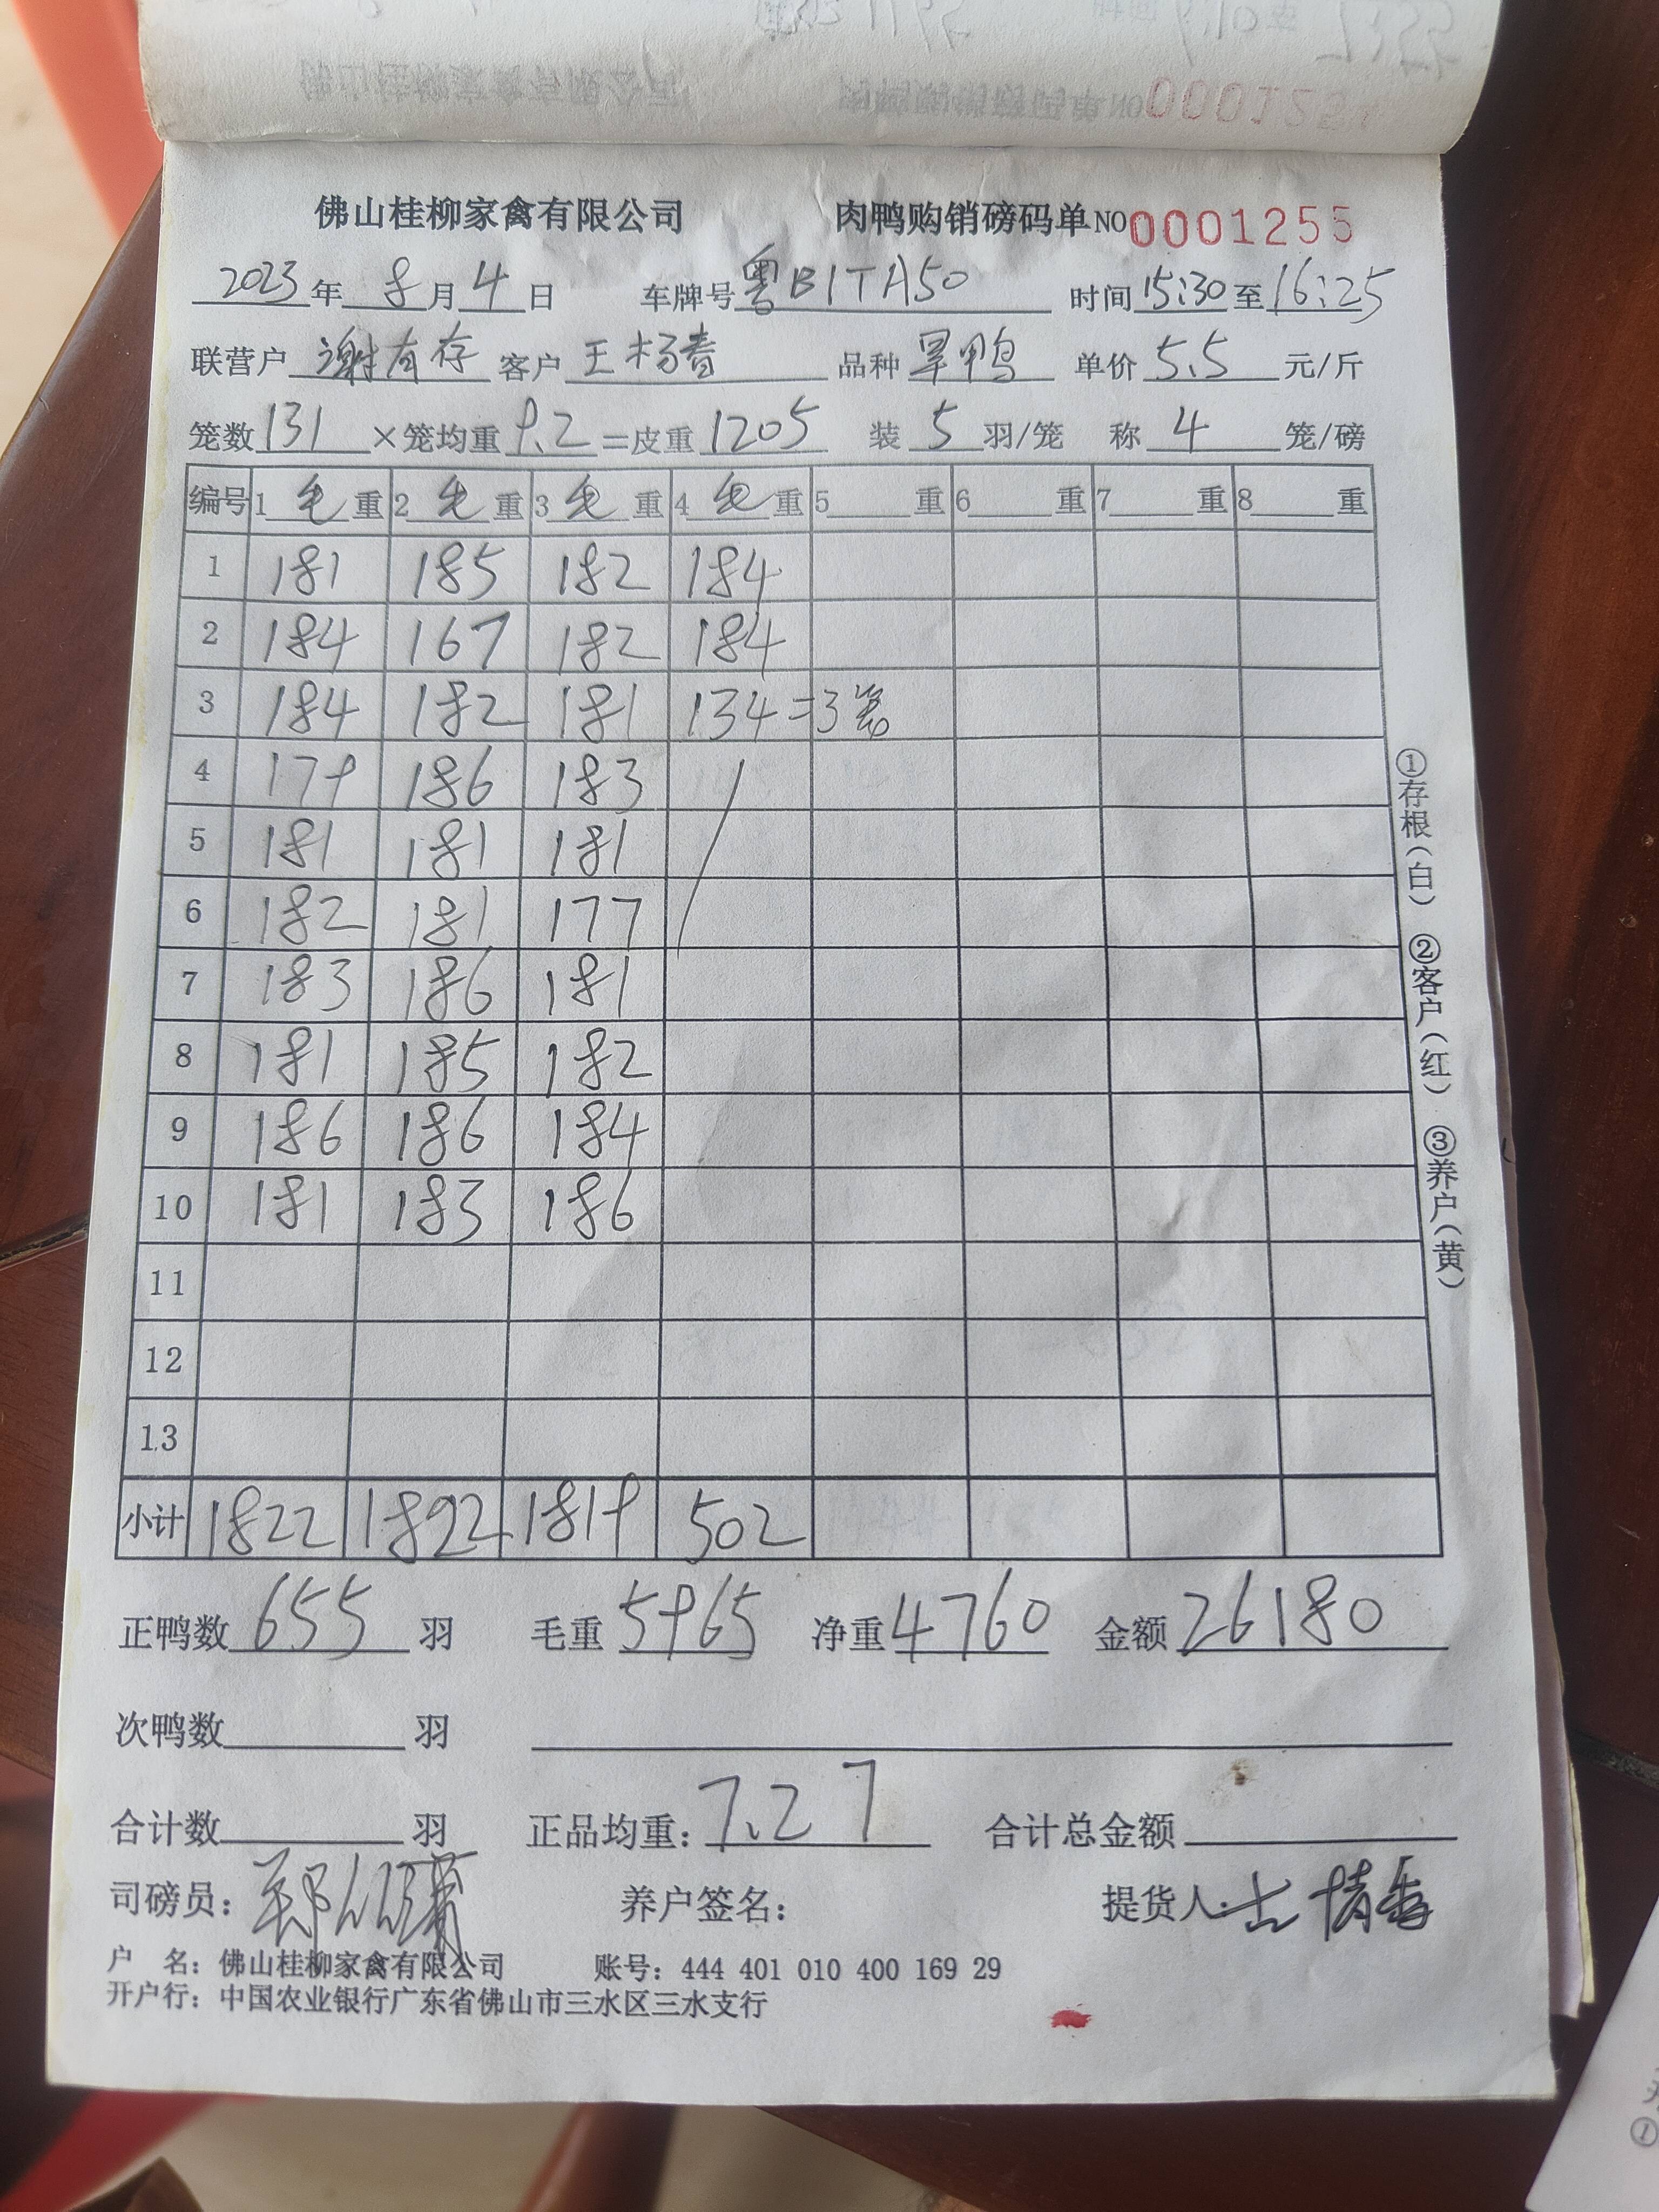 佛山桂柳家禽有限公司 肉鸭购销磅码单NO 0001255
2023年8月4日 车牌号粤B1TA50 时间15:30至16:25
联营户谢有存 客户王杨青 品种旱鸭 单价5.5元/斤
笼数131×笼均重9.2=皮重1205 装5羽/笼 称4笼/磅
编号 1毛重 2毛重 3毛重 4毛重 5重 6重 7重 8重
1 181 185 182 184
2 184 167 182 184
3 184 182 181 134=3笼
4 179 186 183
5 181 181 181
6 182 181 177
7 183 186 181
8 181 185 182
9 186 186 184
10 181 183 186
11
12
13
小计 1822 1822 1819 502
正鸭数655羽 毛重5965 净重4760 金额26180
次鸭数 羽
合计数 羽 正品均重：7.27 合计总金额
司磅员： 养户签名： 提货人：
户 名：佛山桂柳家禽有限公司 账号：444 401 010 400 169 29
开户行：中国农业银行广东省佛山市三水区三水支行
①存根（白） ②客户（红） ③养户（黄）